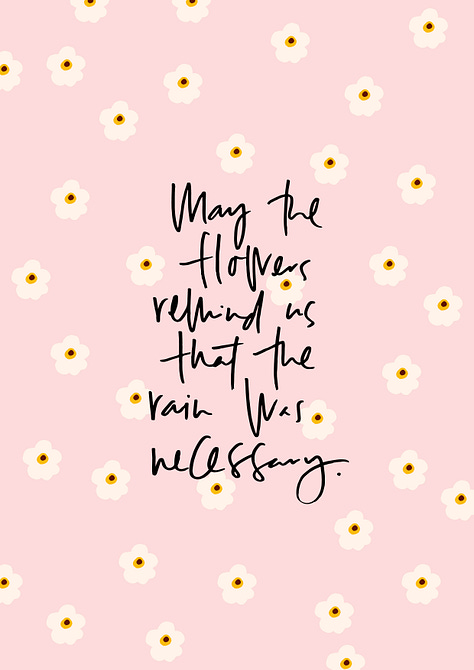 May the
flowers
remind us
that the
rain was
necessary.